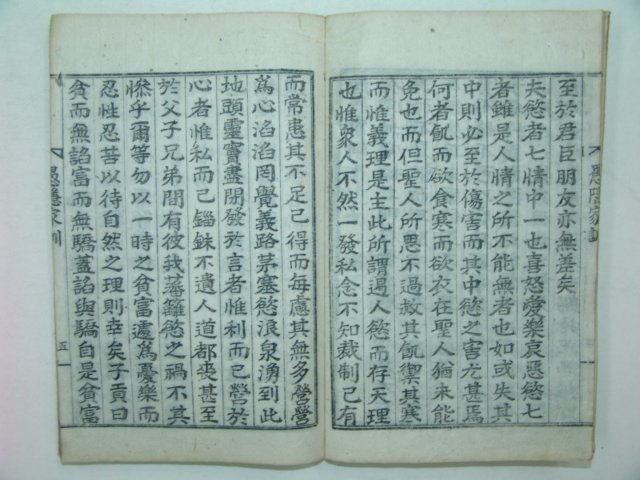 至於君臣朋友亦無差矣
夫慾者七情中一也喜怒愛樂哀惡慾七
者雖是人情之所不能無者也如或失其
中則必至於傷害而其中慾之害尤甚焉
何者飢而欲食寒而欲衣在聖人猶未能
免也而但聖人所思不過救其飢禦其寒
而惟義理是主此所謂遏人慾而存天理
也惟衆人不然一發私念不知裁制已有
而常患其不足已得而每慮其無多營營
爲心滔滔罔覺義路茅塞慾浪泉湧到此
地頭靈竇盡閉發於言者惟利而已營於
心者惟私而已錙銖不遺人道都喪甚至
於父子兄弟間有彼我藩籬慾之禍不其
慘乎爾等勿以一時之貧富遽爲憂樂而
忍性忍苦以待自然之理則幸矣子貢曰
貧而無諂富而無驕蓋諂與驕自是貧富
愚隱家訓
五